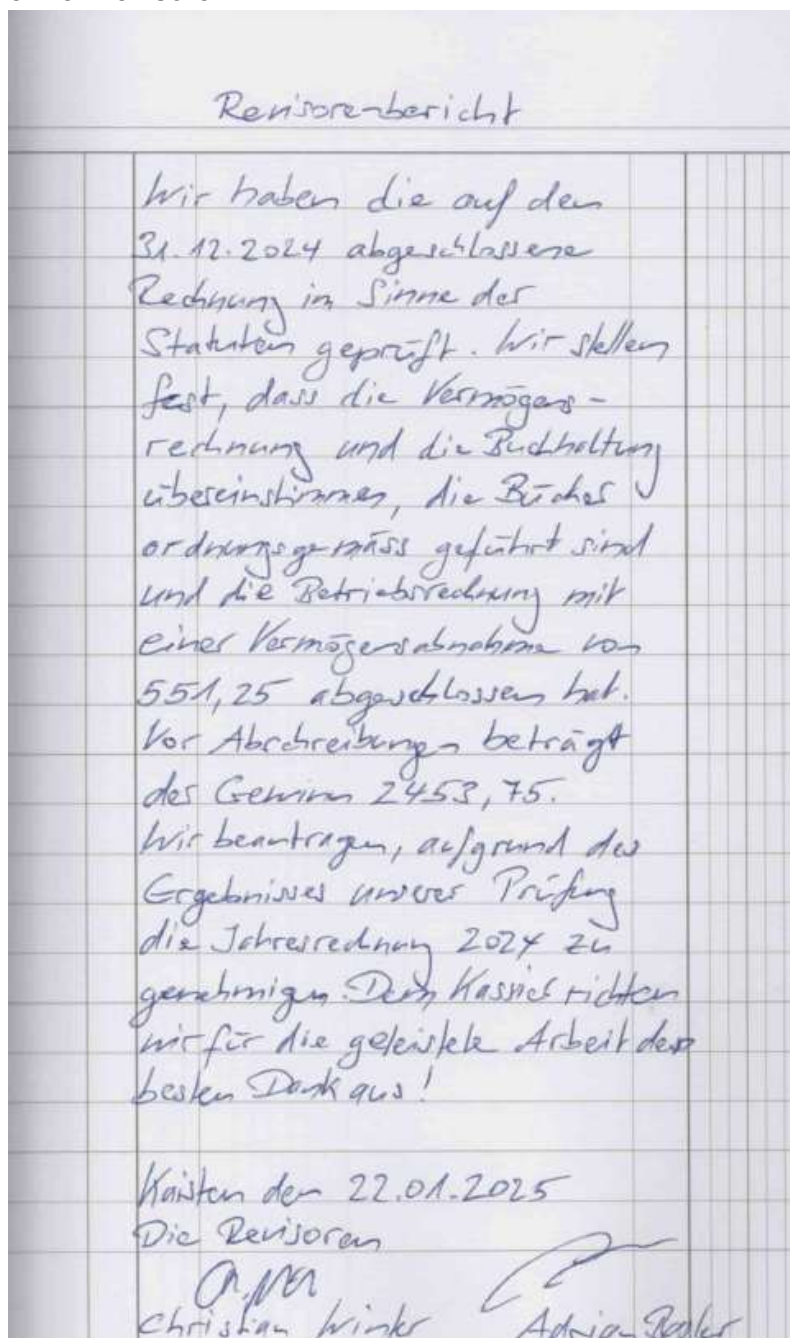 Revisorenbericht
Wir haben die auf den
31.12.2024 abgeschlossene
Rechnung im Sinne der
Statuten geprüft. Wir stellen
fest, dass die Vermögens-
rechnung und die Buchhaltung
übereinstimmen, die Bücher
ordnungsgemäss geführt sind
und die Betriebsrechnung mit
einer Vermögensabnahme von
551,25 abgeschlossen hat.
Vor Abschreibungen beträgt
der Gewinn 2453,75.
Wir beantragen, aufgrund des
Ergebnisses unserer Prüfung
die Jahresrechnung 2024 zu
genehmigen. Dem Kassier richten
wir für die geleistete Arbeit den
besten Dank aus!
Kaisten den 22.01.2025
Die Revisoren
Christian Adrian